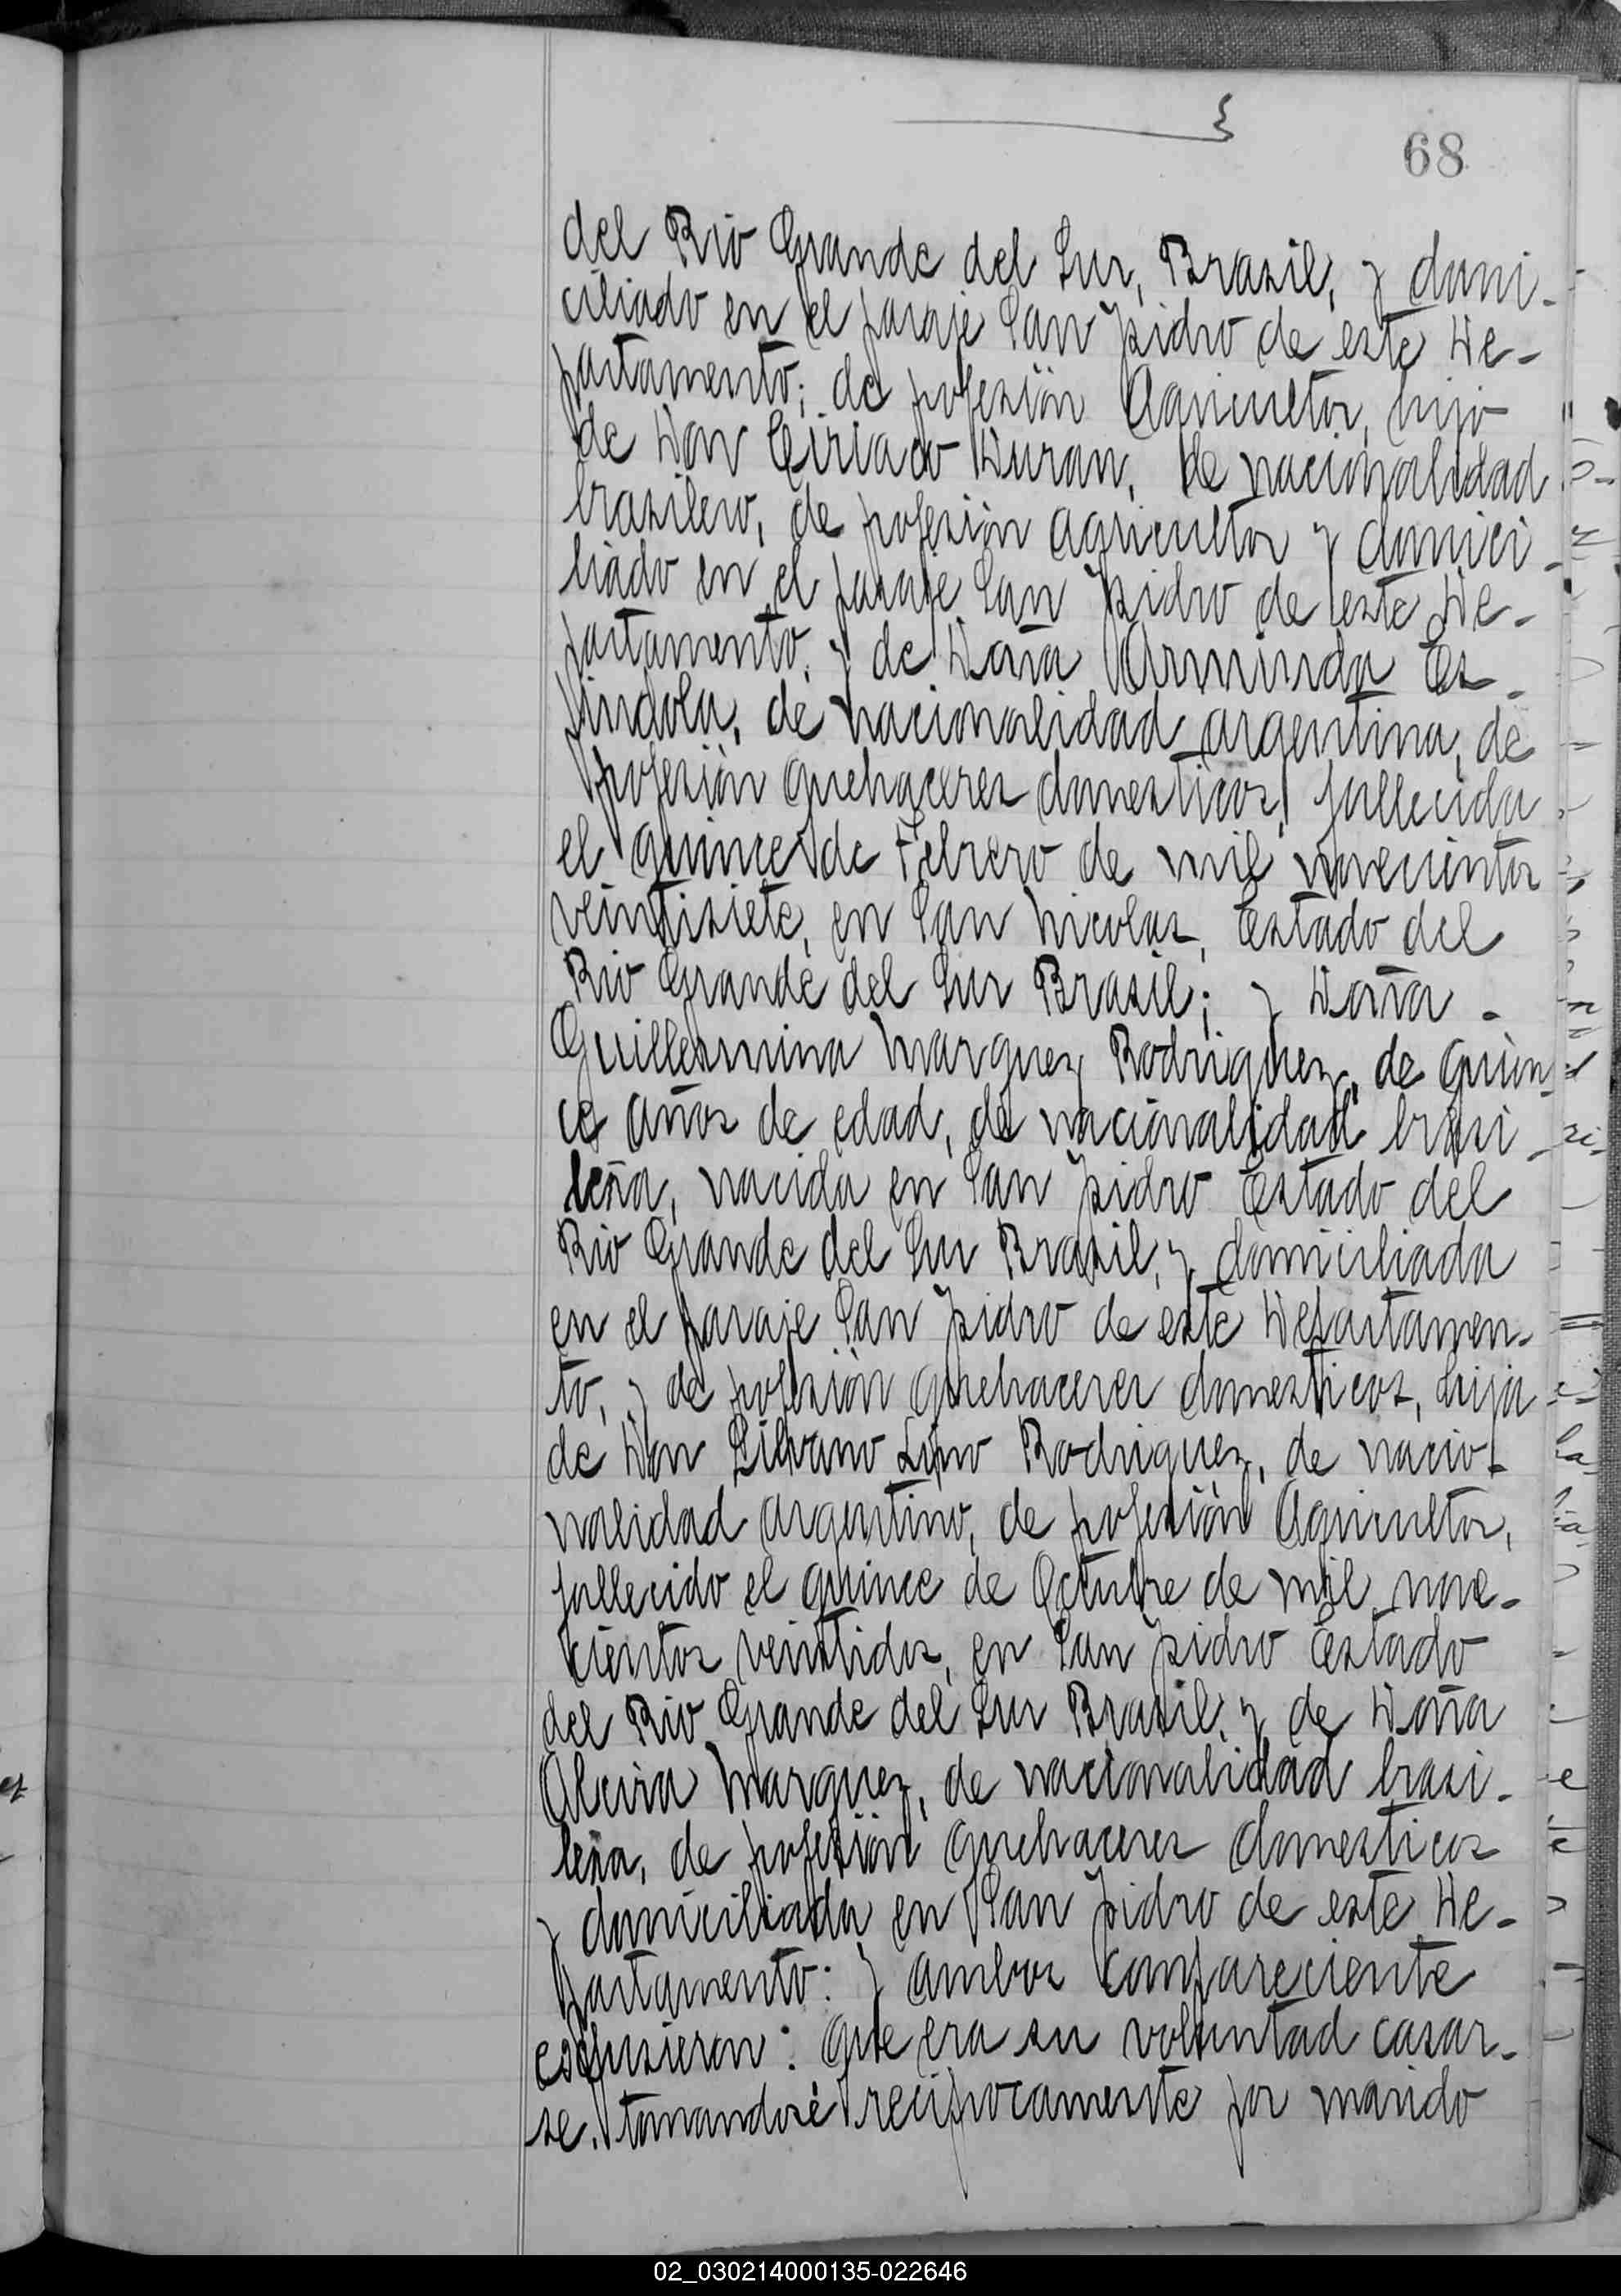 68
del Rio Grande del Sur, Brasil, y domi-
ciliado en el paraje San Isidro de este De-
partamento; de profesión Agricultor, hijo
de Don Ciriaco Duran, de nacionalidad
brasilero, de profesión agricultor y domici-
liado en el paraje San Isidro de este De-
partamento, y de Doña Arminda Es-
pindola, de nacionalidad argentina, de
profesión quehaceres domesticos, fallecida
el quince de Febrero de mil novecientos
veintisiete, en San Nicolas, Estado del
Rio Grande del Sur Brasil; y Doña -
Guillermina Marquez Rodriguez, de quin-
ce años de edad, de nacionalidad brasi-
leña, nacida en San Isidro Estado del
Rio Grande del Sur Brasil, y domiciliada
en el paraje San Isidro de este Departamen-
to, y de profesión quehaceres domesticos, hija
de Don Silvano Rodriguez, de nacio-
nalidad argentino, de profesión Agricultor,
fallecido el quince de Octubre de mil nove-
cientos veintidos, en San Isidro Estado
del Rio Grande del Sur Brasil, y de Doña
Marquez, de nacionalidad brasi-
leña, de profesión quehaceres domesticos
y domiciliada en San Isidro de este De-
partamento: y ambos compareciente
espusieron: que era su voluntad casar-
se, tomandose reciprocamente por marido
02_030214000135-022646